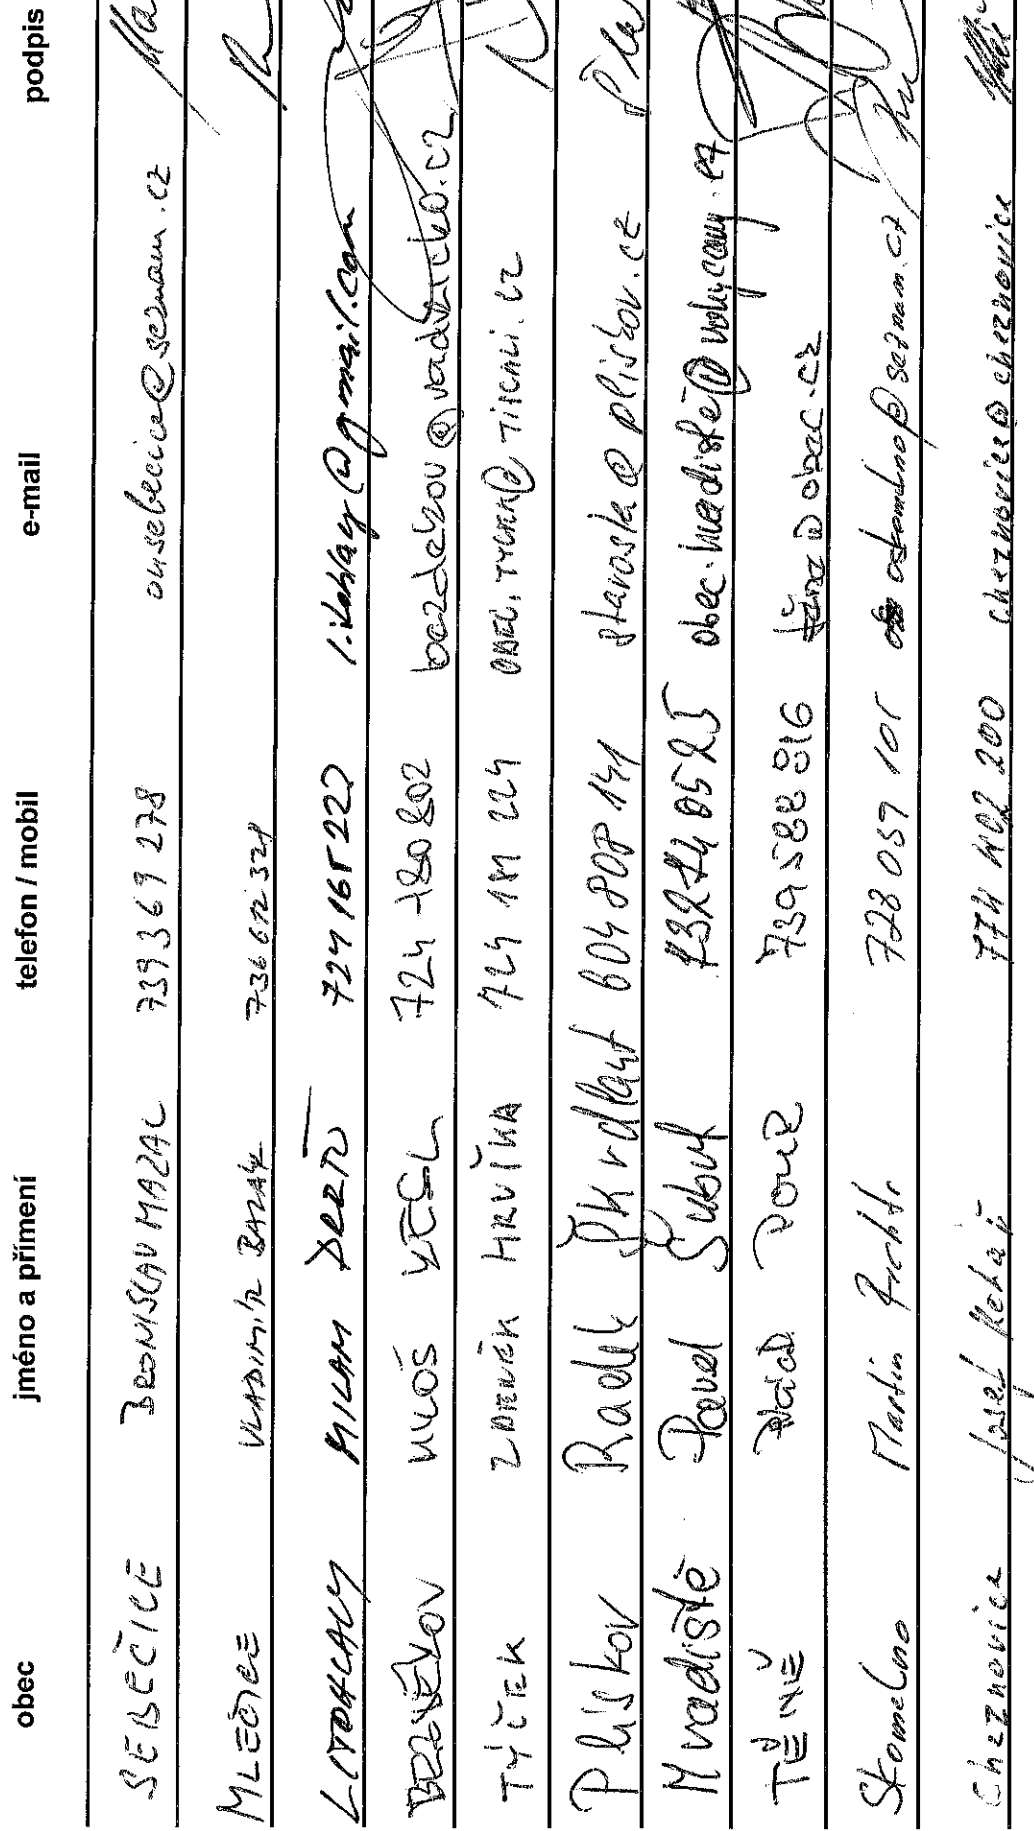 obec jméno a přímení telefon / mobil e-mail podpis
SEBEČICE BRONISLAV MAZAL 739 369 278 ousebecice@seznam.cz
MLEČICE VLADIMÍR BAZAK 736 612 321
MILAN 724 165 227 l.kohlay@gmail.com
MILOŠ 724 180 802
TÝČEK ZDENĚK HRVÍKA 724 111 224 OBEC.TYCEK@TISCALI.CZ
Pliskov Radek Škrdlant 604 808 141 starosta@pliskov.cz
Hvadiště Pavel Šubrt obec.hradiste@volny.cz
TĚNĚ 739588816 obec.cz
Skomelno Martin Richtr 728 039 101 oskomelno@seznam.cz
Cheznovice Josef 774 402 200 cheznovice@cheznovice